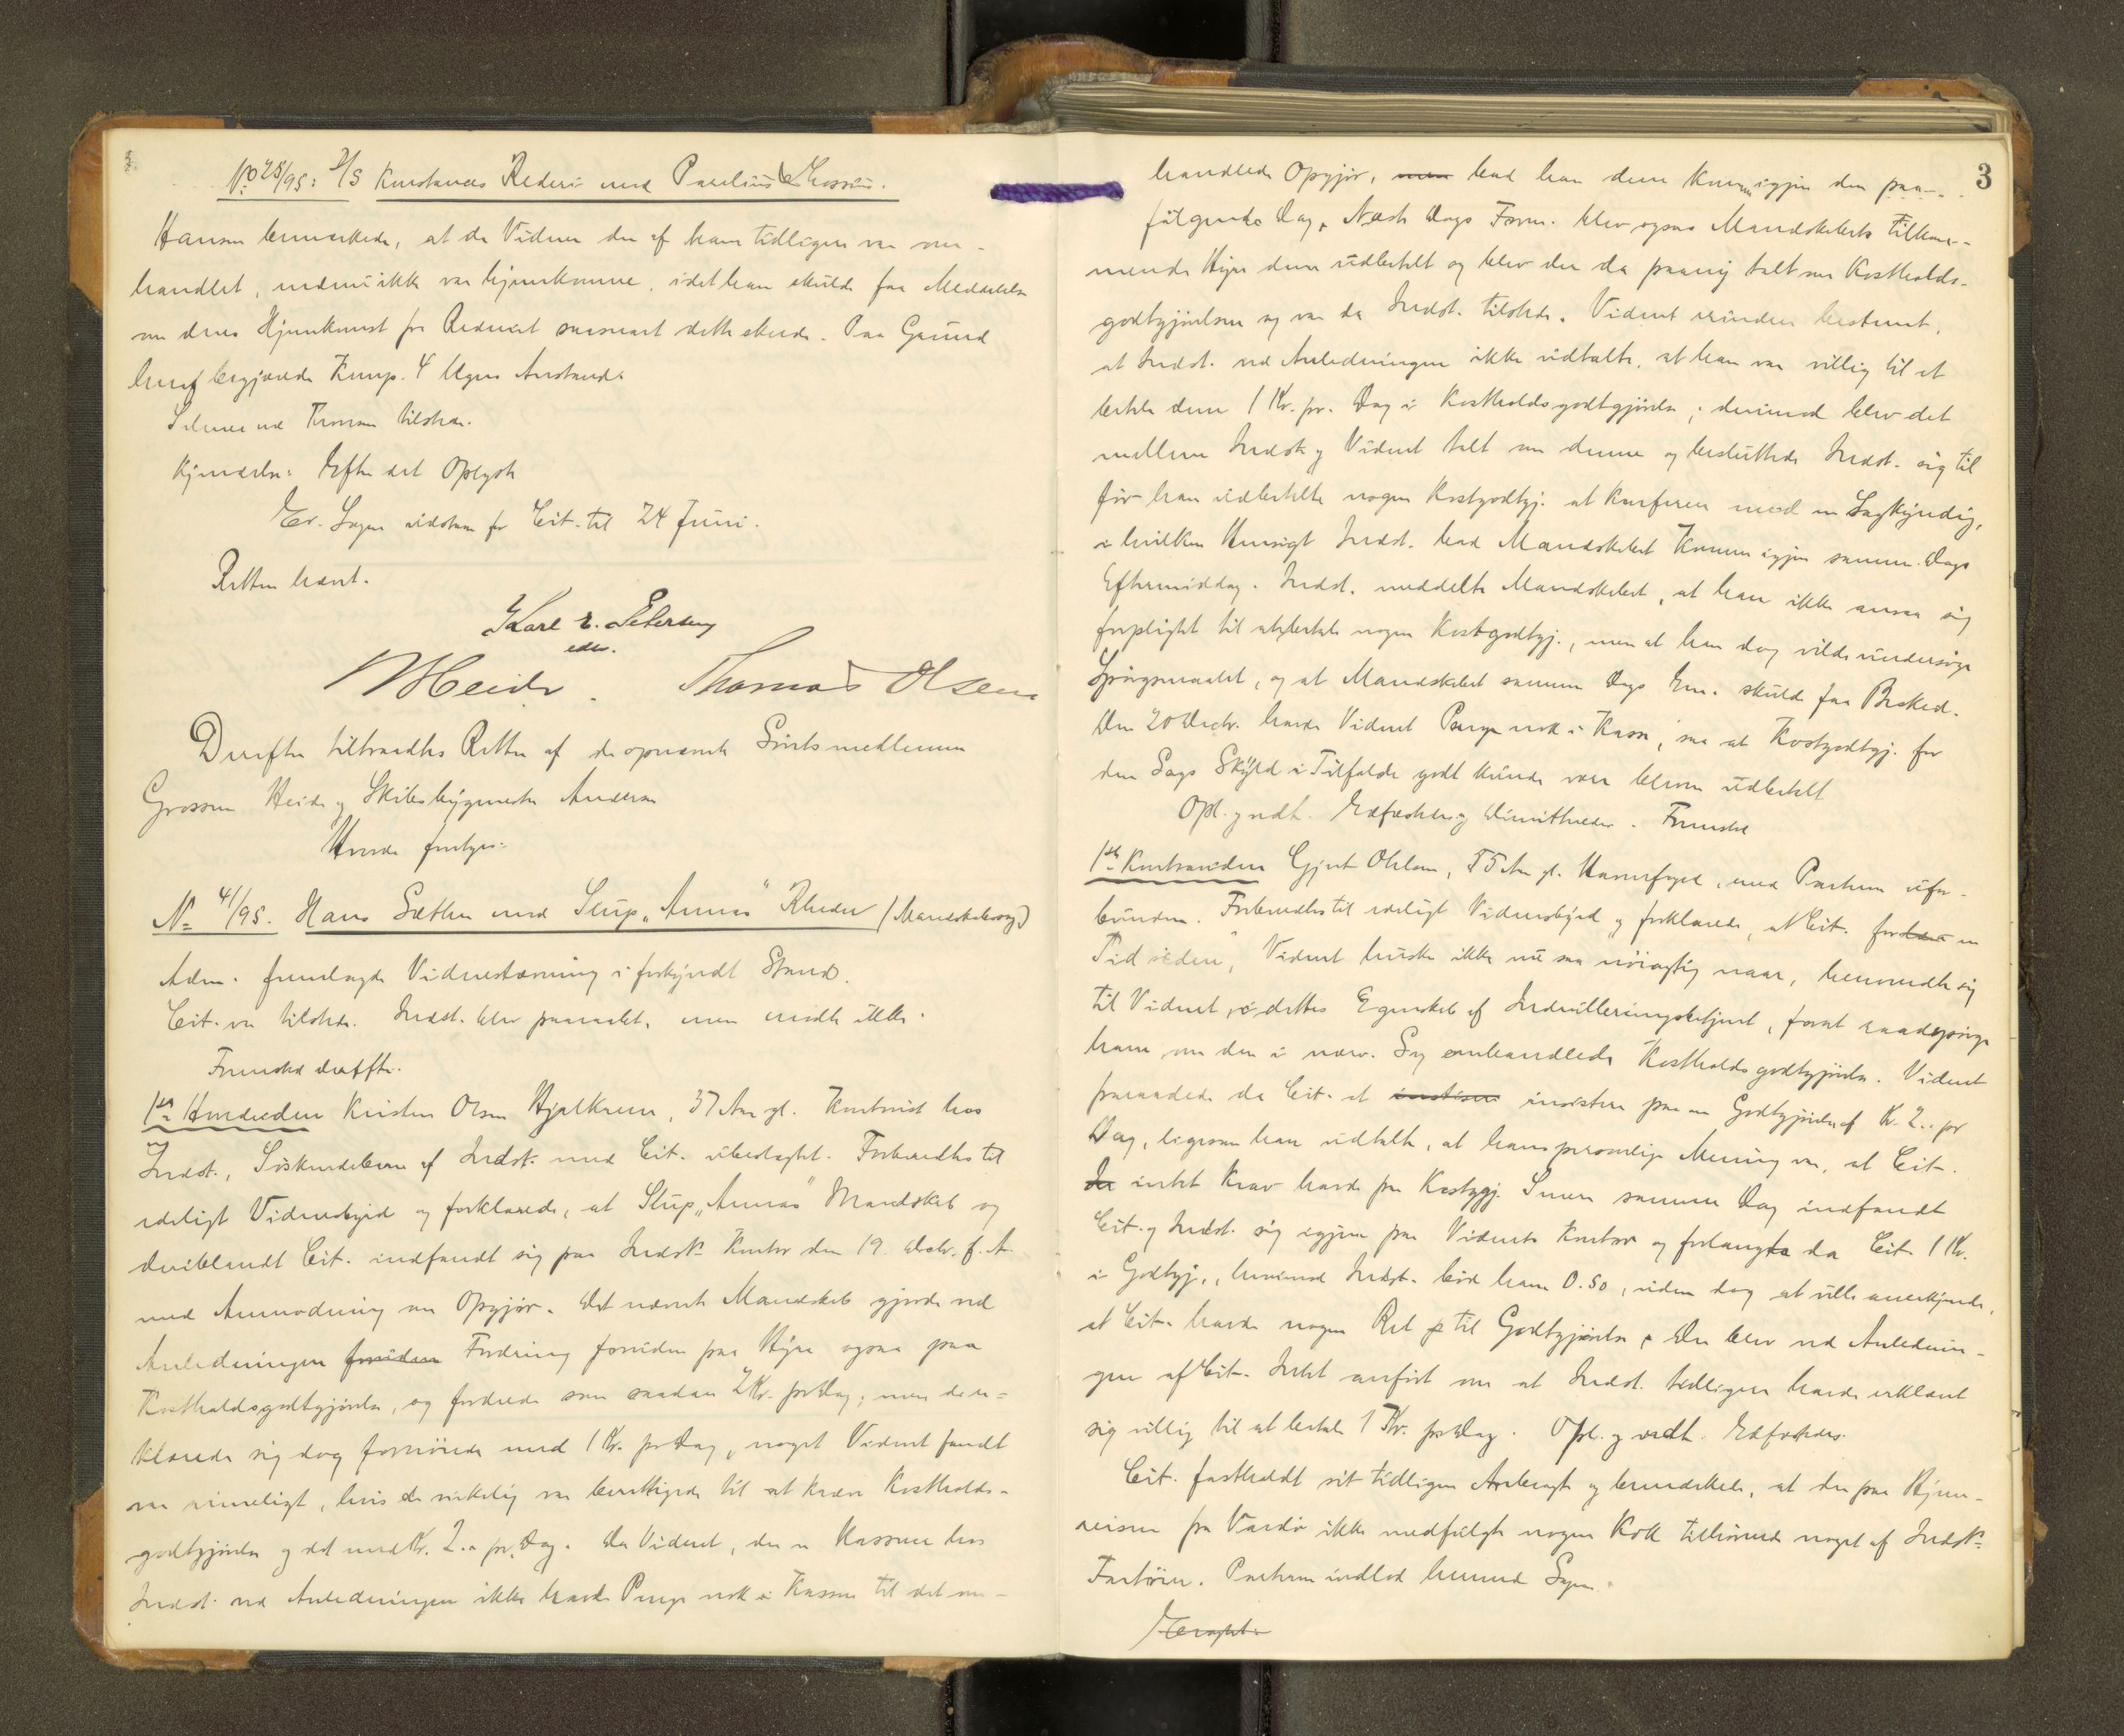 No 25/95: D/S Konstances Rederi mod Paulius
Hansen bemærkede, at de Vidner der af ham tidligere var om-
handlet, endnu ikke var hjemkomne, idet han skulde faa Meddelelse
om deres Hjemkomst fra Rederiet saasnart dette skede. Paa Grund
heraf begjærede Komp. 4 Ugers Anstand.
tilstede.
Kjendelse: Efter det Oplyste
Er. Sagen udsat for Cit. til 24 Juni.
Retten hævet.
Karl L. Petersen
edv.
Heide. Thomas Olsen
Derefter tiltraadtes Retten af de opnævnte Søretsmedlemmer
Grosserer Heide og Skibsbygmester Andersen
Hvorda foretages:
No 41/95. Hans Sæther mod Slup „Annas" Rheder (Mandskabssag)
Adm. fremlagde Vidnestævning i forkyndt Stand.
Cit. var tilstede. Indst. blev paaraabt, men mødte ikke.
Fremstod derefter.
1ste Hovedvidne Kristen Olsen Hjelkrem, 37 Aar gl. Kontorist hos
Indst., Søskendebarn af Indst. med Cit. ubeslægtet. Forberedtes til
edeligt Vidnesbyrd og forklarede, at Slup „Annas" Mandskab og
deriblandt Cit. indfandt sig paa Indst. Kontor den 19. Decbr. f. A.
med Anmodning om Opgjør. Det nævnte Mandskab gjorde ved
Anledningen foruden Fordring foruden paa Hyre ogsaa paa
Kostholdsgodtgjørelse, og fordrede som saadan 2 Kr. pr Dag; men der-
klarede sig dog fornøiede med 1 Kr. pr Dag, noget Vidnet fandt
var rimeligt, hvis de virkelig var berettigede til at kræve Kostholds-
godtgjørelse og det med Kr. 2.. pr. Dag. Da Vidnet, der er Kasserer hos
Indst. ved Anledningen ikke havde Penge nok i Kassen til det om-
3
handlede Opgjør, men bad han dem komme igjen den paa-
følgende Dag. Næste Dags Form. blev ogsaa Mandskabets tilkom-
mende Hyre dem udbetalt og blev der da paany talt om Kostholds-
godtgjørelsen og var da Indst. tilstede. Vidnet erindrer bestemt,
at Indst. ved Anledningen ikke udtalte, at han var villig til at
betale dem 1 Kr. pr. Dag i Kostholdsgodtgjørelse; derimod blev det
mellem Indst. og Vidnet talt om denne og besluttede Indst. sig til
før han udbetalte nogen Kostgodtgj. at konferere med en Sagkyndig,
i hvilken Hensigt Indst. bad Mandskabet komme igjen samme Dags
Eftermiddag. Indst. meddelte Mandskabet, at han ikke ansaa sig
forpligtet til at betale nogen Kostgodtgj., men at han dog vilde undersøge
Spørgsmaalet, og at Mandskabet samme Dags Em. skulde faa Besked.
Den 20 Decbr. havde Vidnet Penge nok i Kassen, saa at Kostgodtgj. for
den Sags Skyld i Tilfælde godt kunde være bleven udbetalt
Opl. og vedt. Edfæstedes og dimitteredes. Fremstod
1ste Kontravidne Gjert Ohlsen, 55 Aar gl. Havnefoged, med Parterne ufor-
bunden. Forberedtes til edeligt Vidnesbyrd og forklarede, at Cit. for en
Tid siden, Vidnet husker ikke nu saa nøiagtig naar, henvendte sig
til Vidnet, i dettes Egenskab af Indrulleringsbetjent, forat raadspørge
ham om den i nærv. Sag omhandlede Kostholdsgodtgjørelse. Vidnet
paaraadede da Cit. at insistere paa en Godtgjørelse af Kr. 2.. pr
Dag, ligesom han udtalte, at hans personlige Mening var, at Cit.
intet Krav havde paa Kostggj. Senere samme Dag indfandt
Cit. og Indst. sig igjen paa Vidnets Kontor og forlangte da Cit. 1 Kr.
i Godtgj., hvorimod Indst. bød ham 0.50, uden dog at ville anerkjende,
at Cit. havde nogen Ret til Godtgjørelse. Der blev ved Anlednin-
gen af Cit. Intet anført om at Indst. tidligere havde erklæret
sig villig til at betale 1 Kr. pr Dag. Opl. og vedt. Edfæstedes.
Cit. fastholdt sit tidligere Anbragte og bemærkede, at der paa Hjem-
reisen fra Vardø ikke medfulgte nogen Kok tilhørende noget af Indst.
Fartøier. Parterne indlod hermed Sagen.